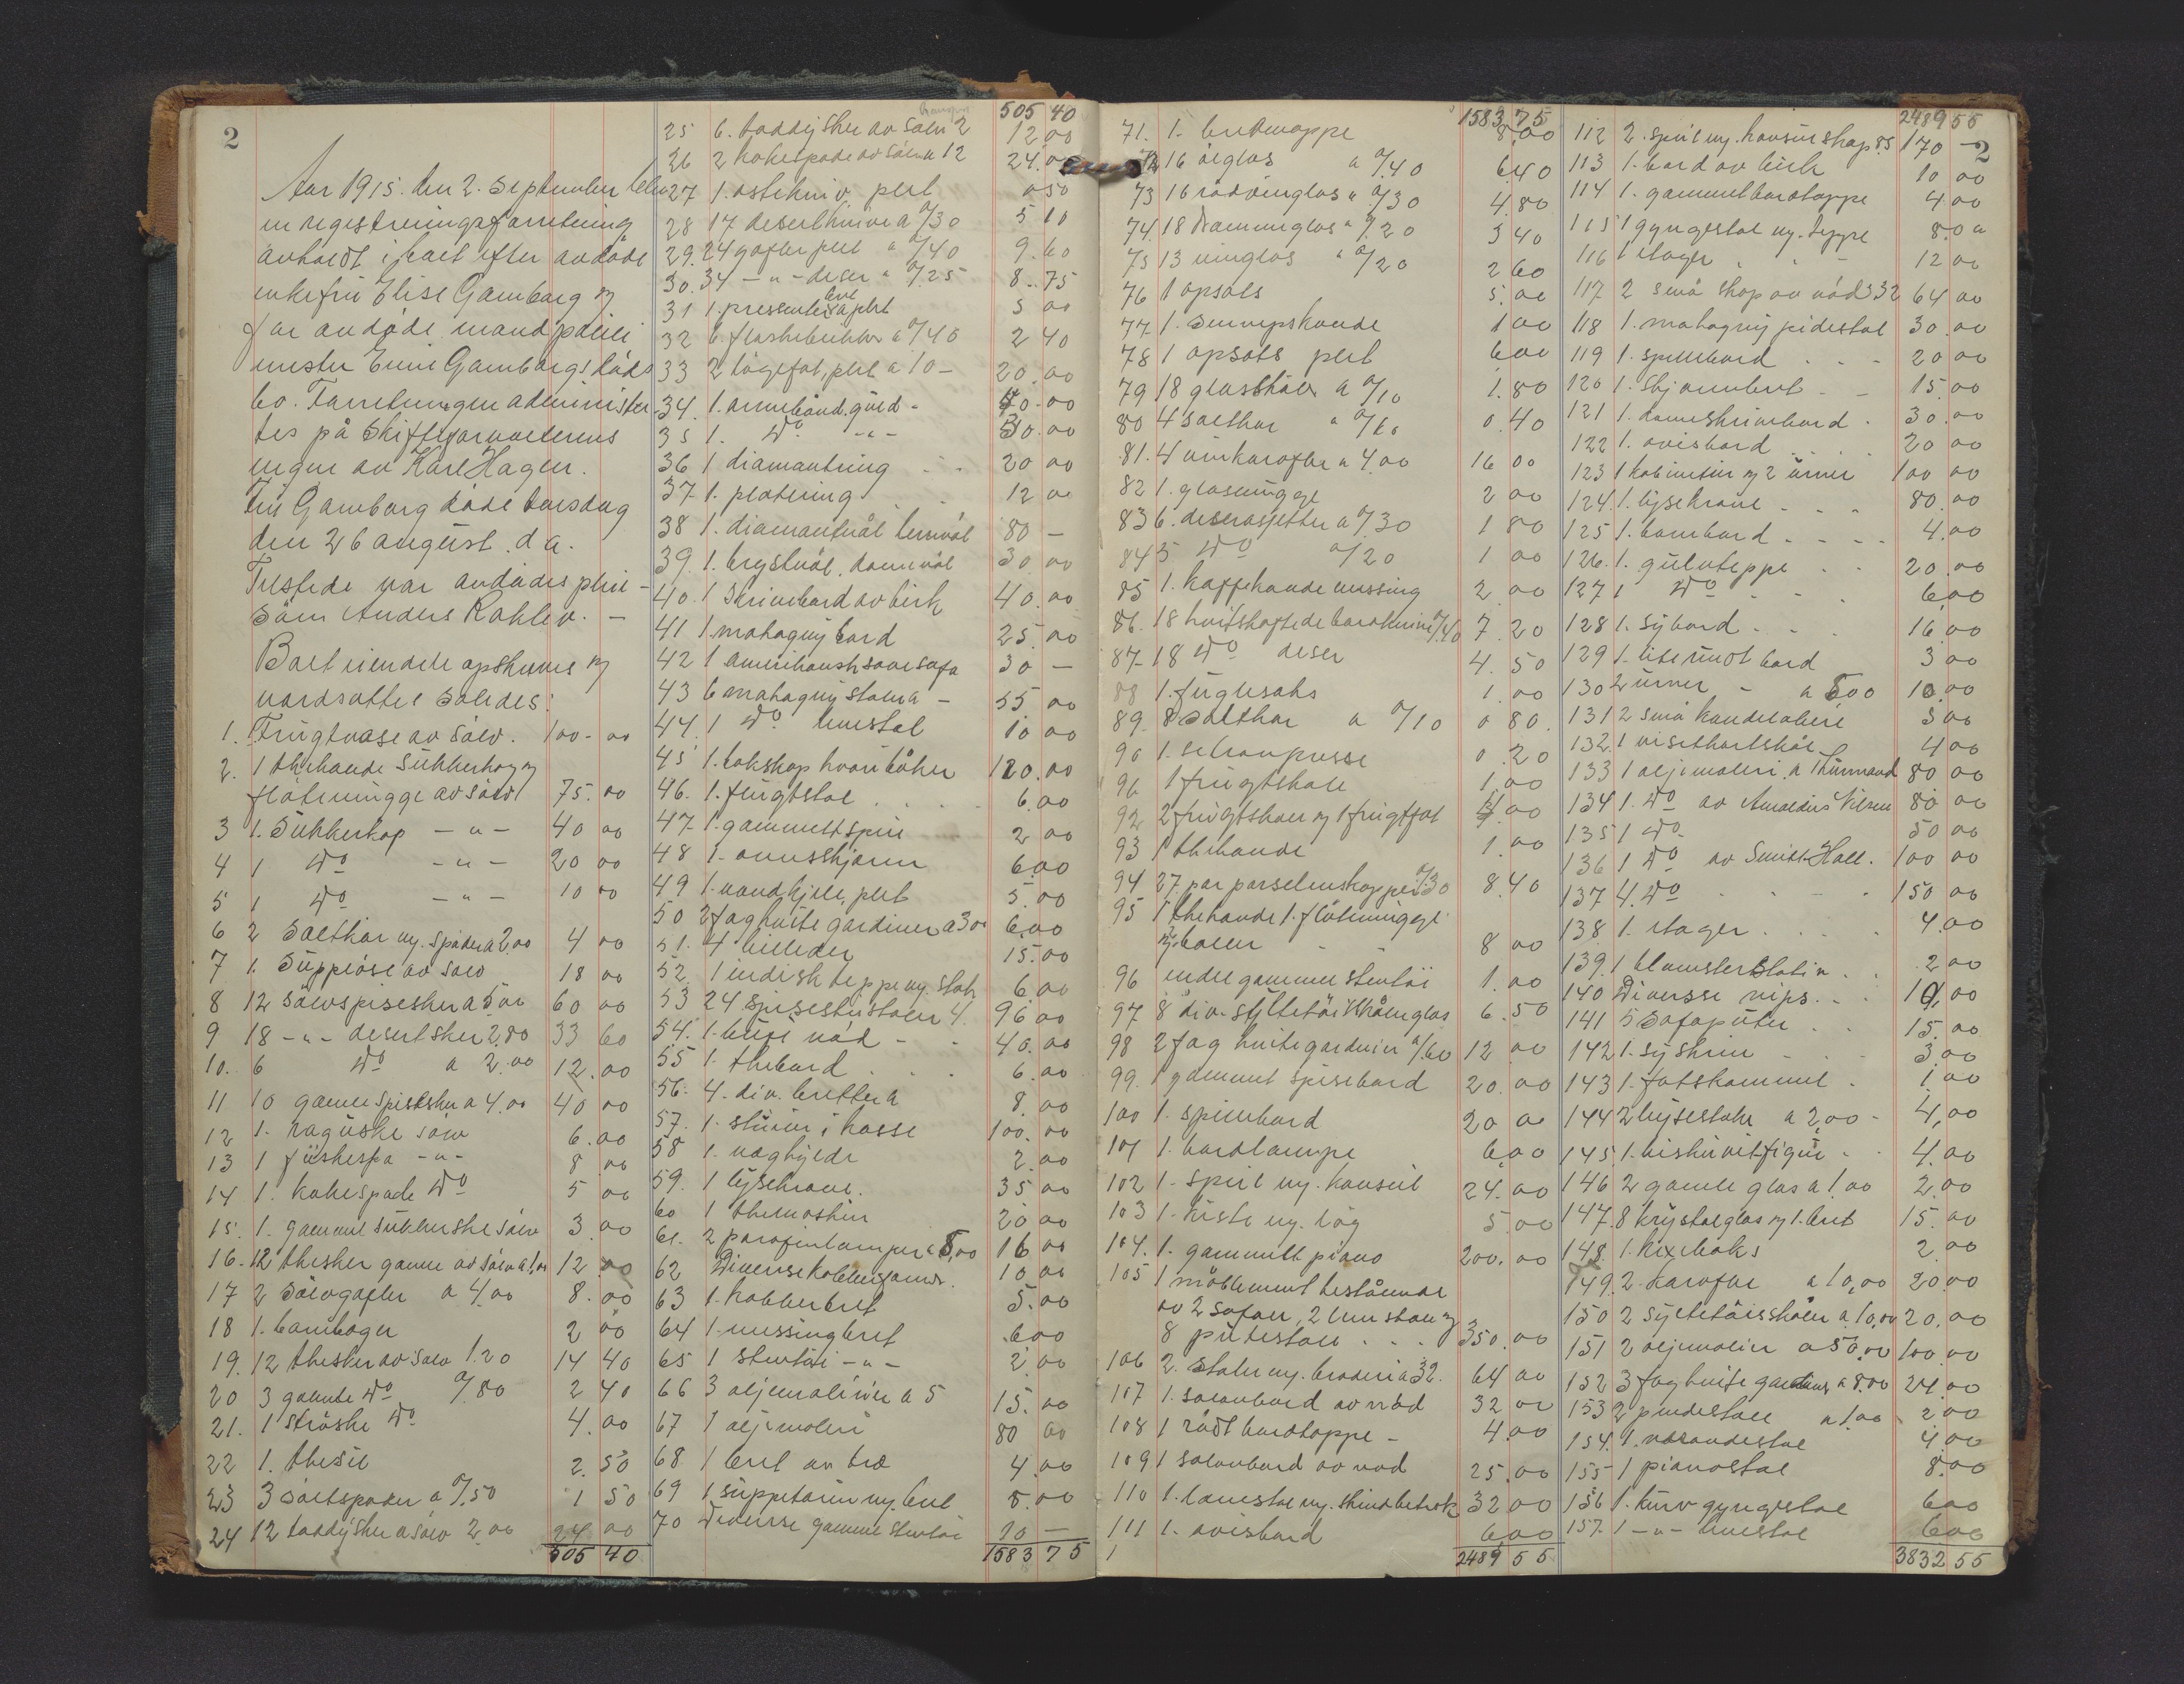 2
Aar 1915. den 2. September blev
en registreringsforretning
avholdt i boet efter avdøde
enkefru Elise Gamborg og
før avdøde mand politi
mester Gamborgs døds
bo. Forretningen administrer
tes på Skifteforvalterens
vegne av Karl Hagen.
Fru Gamborg døde torsdag
den 26 august. d a.
Tilstede var avdødes pleie-
søn Anders Rohlev. -
Boet eiendele opskreves og
værdsattes således:
1. Frugtvase av sølv. 100 - 00
2. 1 thekande Sukkerkop og
fløtemugge av sølv 75. 00
3 1. Sukkerkop - " - 40 00
4 1 do - " - 20 00
5 1 do - " - 10 00
6 2 Saltkar m. spader a 2.00 4 00
7 1. Suppeøse av sølv 18 00
8 12 sølvspiseskeer a 5 00 60 00
9 18 - " - desertskeer 2.80 33 60
10. 6 do a 2.00 12. 00
11 10 gamle spiseskeer a 4.00 40 00
12 1. raguske sølv 6. 00
13 1 fiskespa - " - 8 00
14 1. kakespade do 5 00
15. 1. gammel sukkerske sølv 3. 00
16. 12 theskeer gamle av sølv a 1.00 12 00
17 2 sølvgafler a 4.00 8. 00
18 1. barnbæger 2 00
19. 12 theskeer av sølv 1.20 14 40
20 3 gamle do a 0/80 2 40
21. 1 strøske do 4. 00
22 1. thesil 2. 50
23 3 saltspader a 0/.50 1 50
24 12 toddyskeer a sølv 2.00 24 00
505 40
505 40
25 6. toddyskeer av sølv 2 12 00
26 2 kakespade av sølv a 12 24. 00
27 1. ostekniv plet 0 50
28 17 desertknive a 0/30 5 10
29. 24 gafler plet a 0/40 9. 60
30. 34 - " - deser a 0/.25 8. 75
31 1. presenterbret a plet 5 00
32 6. flaskebrikker a 0/40 2 40
33 2 lågefat, plet a 10 - 20. 00
34. 1. armebånd. guld - 70. 00
35 1. do - " - 30. 00
36 1 diamantring . . 20 00
37 1. platering . . 12 00
38 1. diamantnål herrenål 80 -
39. 1. brystnål. damenål 30. 00
40. 1 Skrivebord av birk 40. 00
41 1. mahogny bord 25. 00
42 1 amerikansk sovesofa 30 -
43 6 mahogny stoler a - 55 00
44. 1 do lænestol 10 00
45 1. bokskap hvori bøker 120. 00
46. 1. flugtstol . . . 6. 00
47 1. gammelt speil 2 00
48 1. ovnsskjerm 6. 00
49 1. vandkjele, plet 5. 00
50 2 fag hvite gardiner a 3 00 6. 00
51. 4 billeder 15. 00
52. 1 indisk teppe m. stok 6. 00
53 24 spisestuestoler 4. 96. 00
54. 1. buffe nød - - 40. 00
55 1. thebord . . . 6. 00
56. 4. div. bretter a 8. 00
57. 1. stueur i kasse 100. 00
58 1. vægkjelde 2. 00
59. 1 lysekrone. 35 00
60 1 themaskin 20 00
61. 2 parafinlamper a 8,00 16 00
62 Diverse kobbergjenst. 10 00
63 1. kobberbret 5. 00
64 1. messingbret 6 00
65 1 stentøi - " - 2. 00
66 3 oljemalerier a 5 15. 00
67 1 oljemaleri 80 00
68 1 bret av træ 4. 00
69 1. suppeterin m. bret 8. 00
70 Diverse gammel stentøi 10 -
1583 75
1583 75
71. 1. bretmappe 8,00
72 16 ølglas a 0/.40 6 40
73 16 rødvinglas a 0/30 4. 80
74. 18 dramenglas a 0/.20 3 40
75 13 vinglas a 0/20 2 60
76 1 opsats 5. 00
77 1. sennepskande 1 00
78 1 opsats plet 6 00
79 18 glasskåler a 0/10 1. 80
80 4 saltkar a 0/10 0. 40
81. 4 vinkarafler a 4.00 16 00
82 1. glasmugge 2 00
83 6. deserasjetter a 0/.30 1 80
84 5 do 0/20 1 00
85 1. kaffekande messing 2. 00
86. 18 hvitskaftede bordknive 0/.40 7. 20
87 18 do deser 4. 50
88 1. fuglesaks 1. 00
89. 8 saltkar a 0/10 0 80.
90 1. sitronpresse 0. 20
91 1 frugtskål 1. 00
92 2 frugtskåler og 1 frugtfat 4. 00
93 1 thekande 1. 00
94 27 par porselenskopper 0/.30 8. 40
95 1 thekande 1. fløtemugge
og boller - - 8 00
96 endel gammel stentøi 1. 00
97 8 div. syltetøiskåler glas 6. 50
98 2 fag hvite gardiner a/.60 12 00
99. 1 gammel spisebord 20. 00
100 1. spillebord 20 00
101 1. bordlampe 6. 00
102 1. Speil m. konsol 24. 00
103 1. kiste m. låg 5. 00
104. 1. gammelt piano 200. 00
105 1 møblement bestående
av 2 sofaer, 2 lænestoler og
8 putestoler . . . 350. 00
106 2. Stoler m. broderi a 32. 64 00
107 1. salonbord av nød 32 00
108 1 rødt bordteppe - 4. 00
109 1 salonbord av nød 25. 00
110 1. lænestol m. skindbetræk 32 00
111 1. avisbord 6 00
2489 55
2489 55
2
112 2. speil m. konsur skap 85 170 -
113 1. bord av birk 10 00
114 1. gammel bordteppe 4. 00
115 1 gyngestol m. teppe 8. 00
116 1 etager . . - 12 00
117 2 små skap av nød a 32 64 00
118 1. mahogny pidestal 30. 00
119 1. spillebord . . - 20 00
120 1. Skjermbret - - 15. 00
121 1. dameskrivebord . 30. 00
122 1. avisbord . . . 20 00
123 1 kabinetur og 2 urner 100 00
124 1. lysekrone . . . 80. 00
125 1. bambord - . . . 4. 00
126. 1. gulvteppe . . 20. 00
127 1 do - - . . 6,00
128 1. sybord - - . 16. 00
129 1. lite rundt bord 3 00
130 2 urner - a 5 00 10. 00
131 2 små kandelabere 3 00
132. 1 visitkortskål 4 00
133 1 oljemaleri, a Thurmand 80 00
134 1. do av Amaldus Nilsen 80 00
135 1 do 50 00
136 1 do av Smith-Hald. 100 00
137 4. do . . - . 150 00
138 1. etager . . . . 4. 00
139. 1 blomsterstativ . . 2 00
140 Diversse nips. . . 10,00
141 5 sofaputer . . 15. 00
142 1. syskrin - - - . 3. 00
143 1. fotskammel . 1. 00
144 2 lysestake a 2,00 - 4,00
145. 1. biskuitfigur - . 4. 00
146 2 gamle glas a 1.00 2. 00
147. 8 krystalglas og 1. bret 15. 00
148. 1. kixeboks 2. 00
149. 2. karafler a 10,00 20. 00
150 2 syltetøisskåler a 10,00 20. 00
151 2 oljemalier a 50,00 100. 00
152 3 fag hvite gardiner a 8.00 24. 00
153 2 pindestole a 1.00 2. 00
154. 1. verandastol 4. 00
155 1 pianostol 8. 00
156 1. kurv gyngestol 6 00
157. 1 - " - lænestol 6 00
3832 55